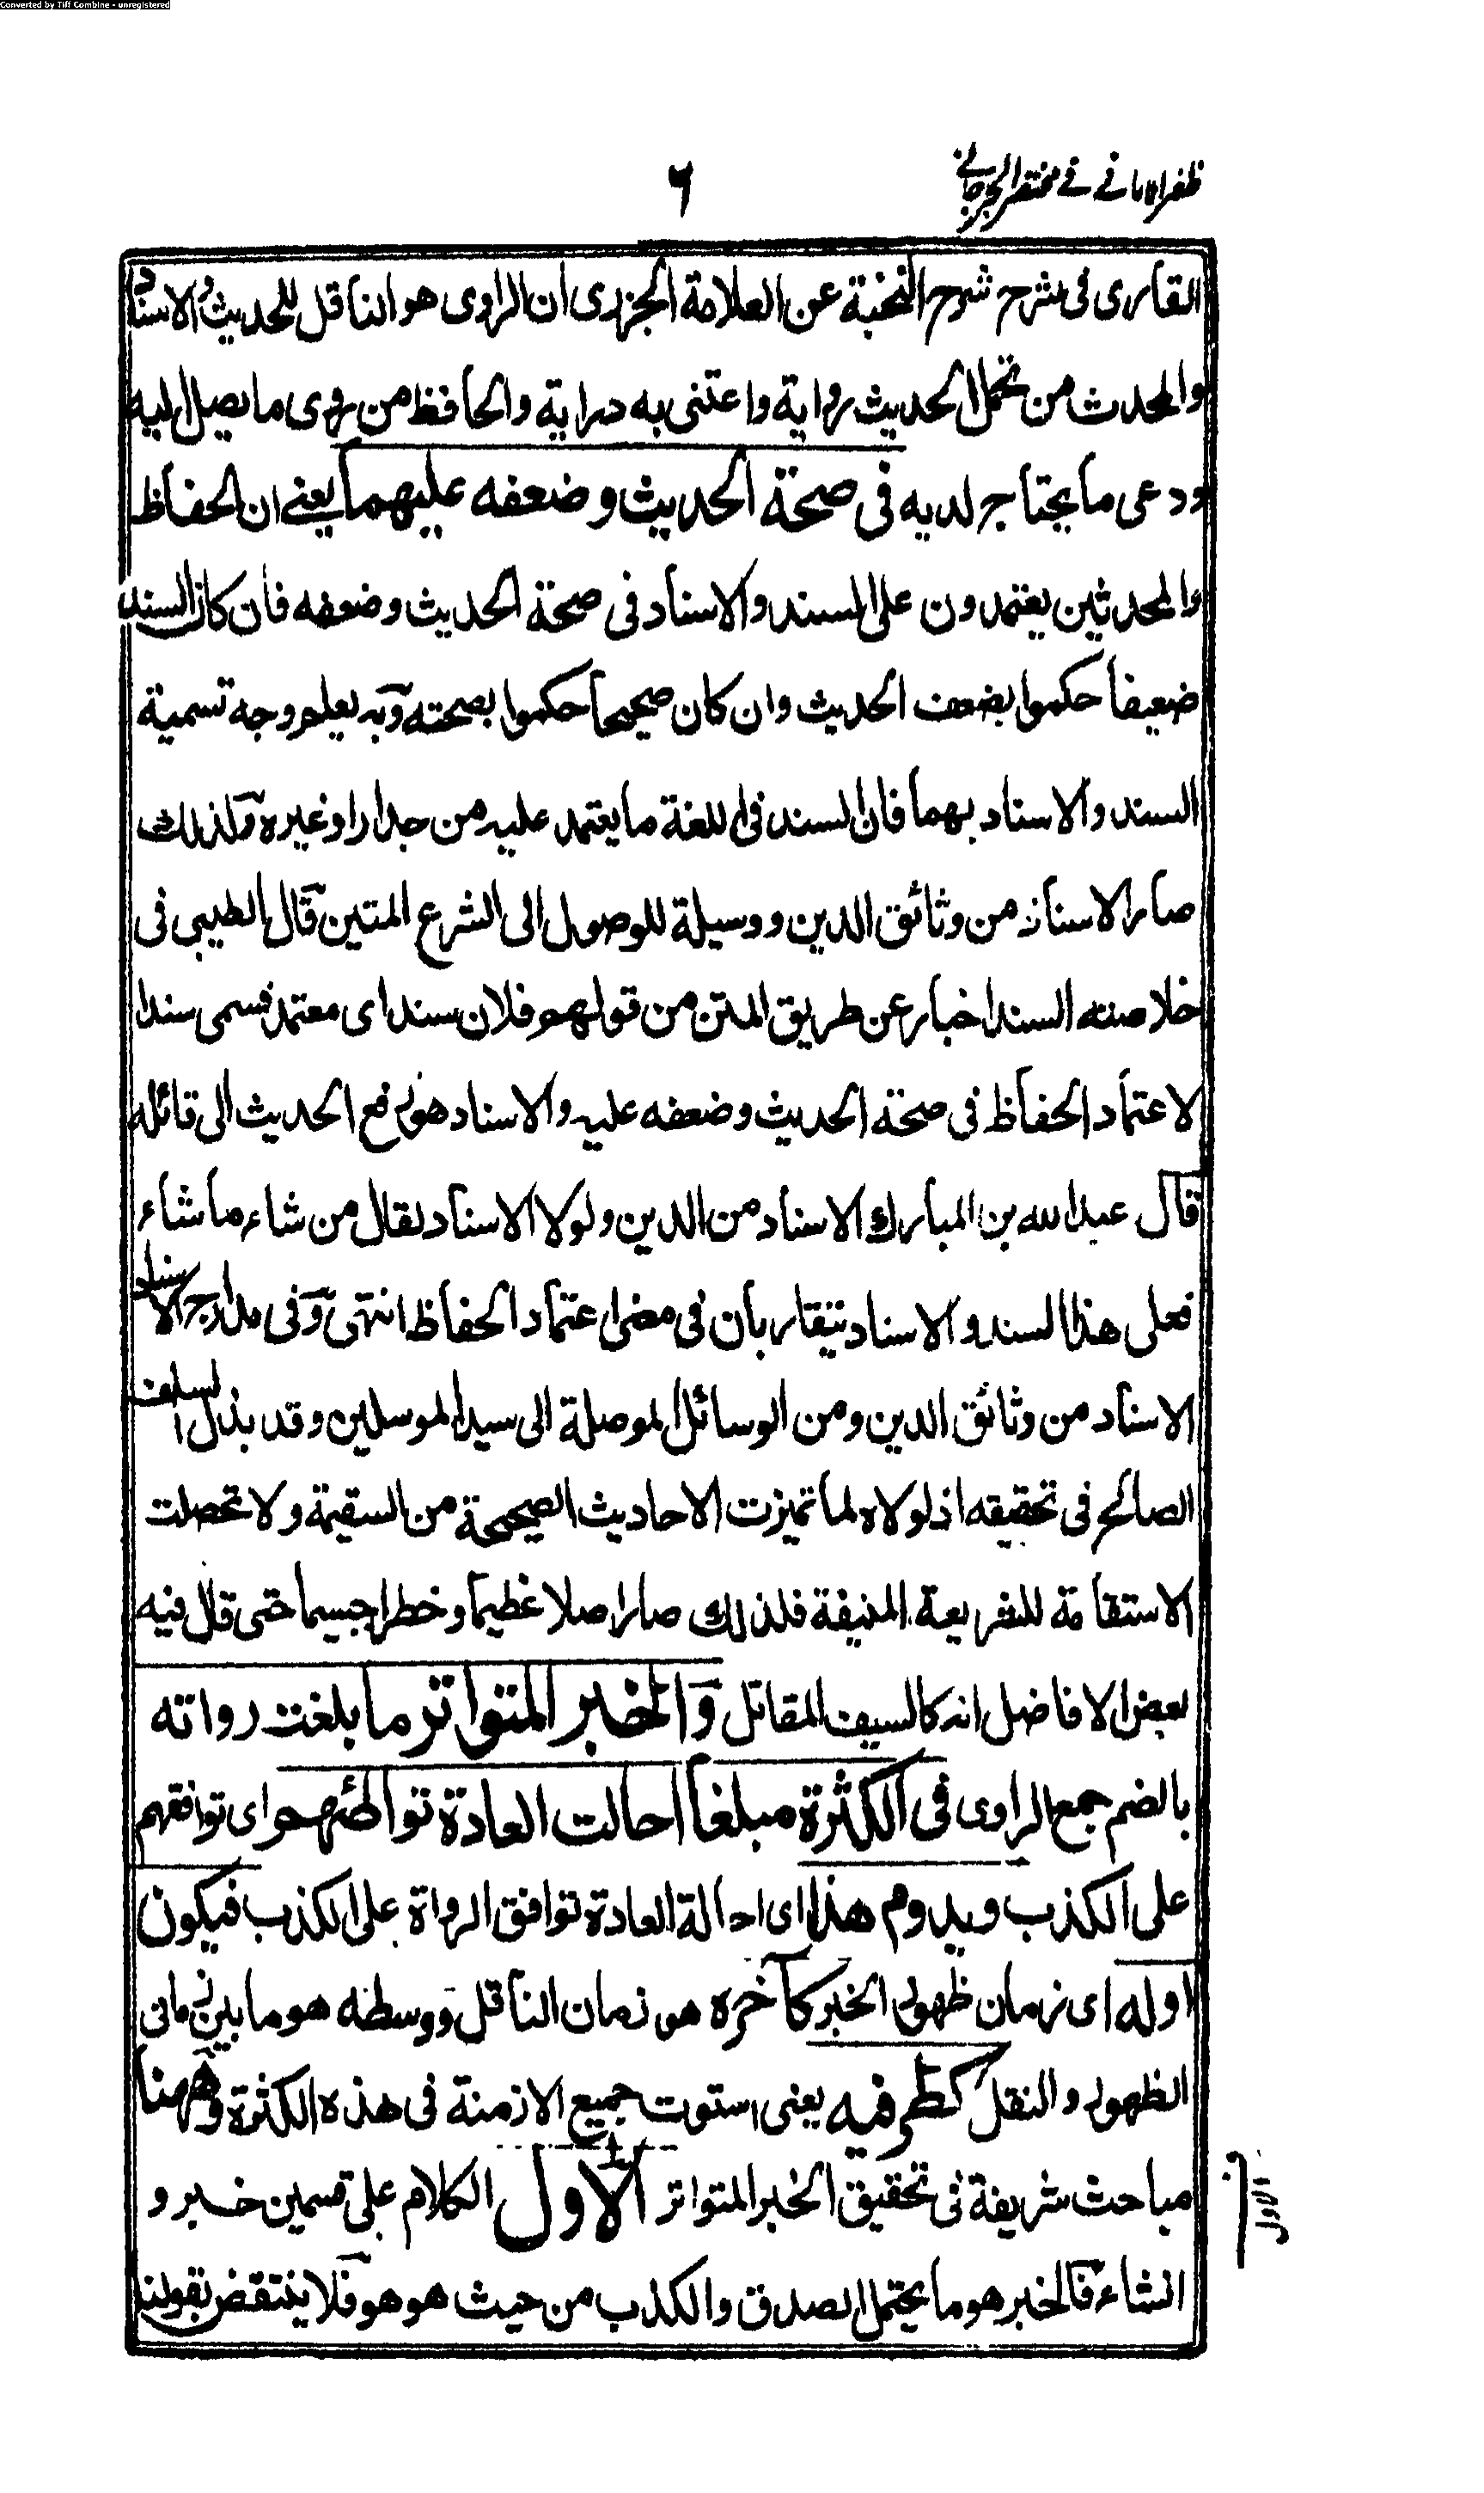 Converted by Tiff Combine - unregistered
ظفر الامانے فے مختصر الجرجانے
٦
القاری فی شرح شرح النخبة عن العلامة الجزری ان الراوی هو الناقل للحدیث والاسناد
والمحدث من تحمل الحدیث روایة واعتنی به درایة والحافظ من روی ما یصل الیه
ودعی ما یحتاج لدیه فی صحة الحدیث وضعفه علیهما یعنے ان الحفاظ
والمحدثین یعتمدون علی السند والاسناد فی صحة الحدیث وضعفه فان کان السند
ضعیفا حکموا بضعف الحدیث وان کان صحیحا حکموا بصحته وبه یعلم وجه تسمیة
السند والاسناد بهما فان السند فی اللغة ما یعتمد علیه من جدار او غیره وکذلک
صار الاسناد من وثائق الدین ووسیلة للوصول الی الشرع المتین قال الطیبی فی
خلاصته السند اخبار عن طریق المتن من قولهم فلان سند ای معتمد فسمی سندا
لاعتماد الحفاظ فی صحة الحدیث وضعفه علیه والاسناد هو رفع الحدیث الی قائله
قال عبد الله بن المبارك الاسناد من الدین ولولا الاسناد لقال من شاء ما شاء
فعلی هذا السند والاسناد یتقاربان فی معنی اعتماد الحفاظ انتهی وفی مدارج الاسناد
الاسناد من وثائق الدین ومن الوسائل الموصلة الی سید المرسلین وقد بذل السلف
الصالح فی تحقیقه اذ لولاه لما تمیزت الاحادیث الصحیحة من السقیمة ولا تحصلت
الاستقامة للشریعة المنیفة فلذلك صار اصلا عظیما وخطرا جسیما حتی قال فیه
بعض الافاضل انه کالسیف المقاتل والخبر المتواتر ما بلغت رواته
بالضم جمع الراوی فی الکثرة مبلغا احالت العادة تواطئهم ای توافقهم
علی الکذب ویدوم هذا ای احالة العادة توافق الرواة علی الکذب فیکون
اوله ای زمان ظهور الخبر کآخره هو زمان الناقل ووسطه هو ما بین زمانی
الظهور والنقل کطرفیه یعنی استوت جمیع الازمنة فی هذه الکثرة وههنا
مباحث شریفة فی تحقیق الخبر المتواتر الاول الکلام علی قسمین خبر و
انشاء فالخبر هو ما یحتمل الصدق والکذب من حیث هو هو فلا ینتقض بقولنا